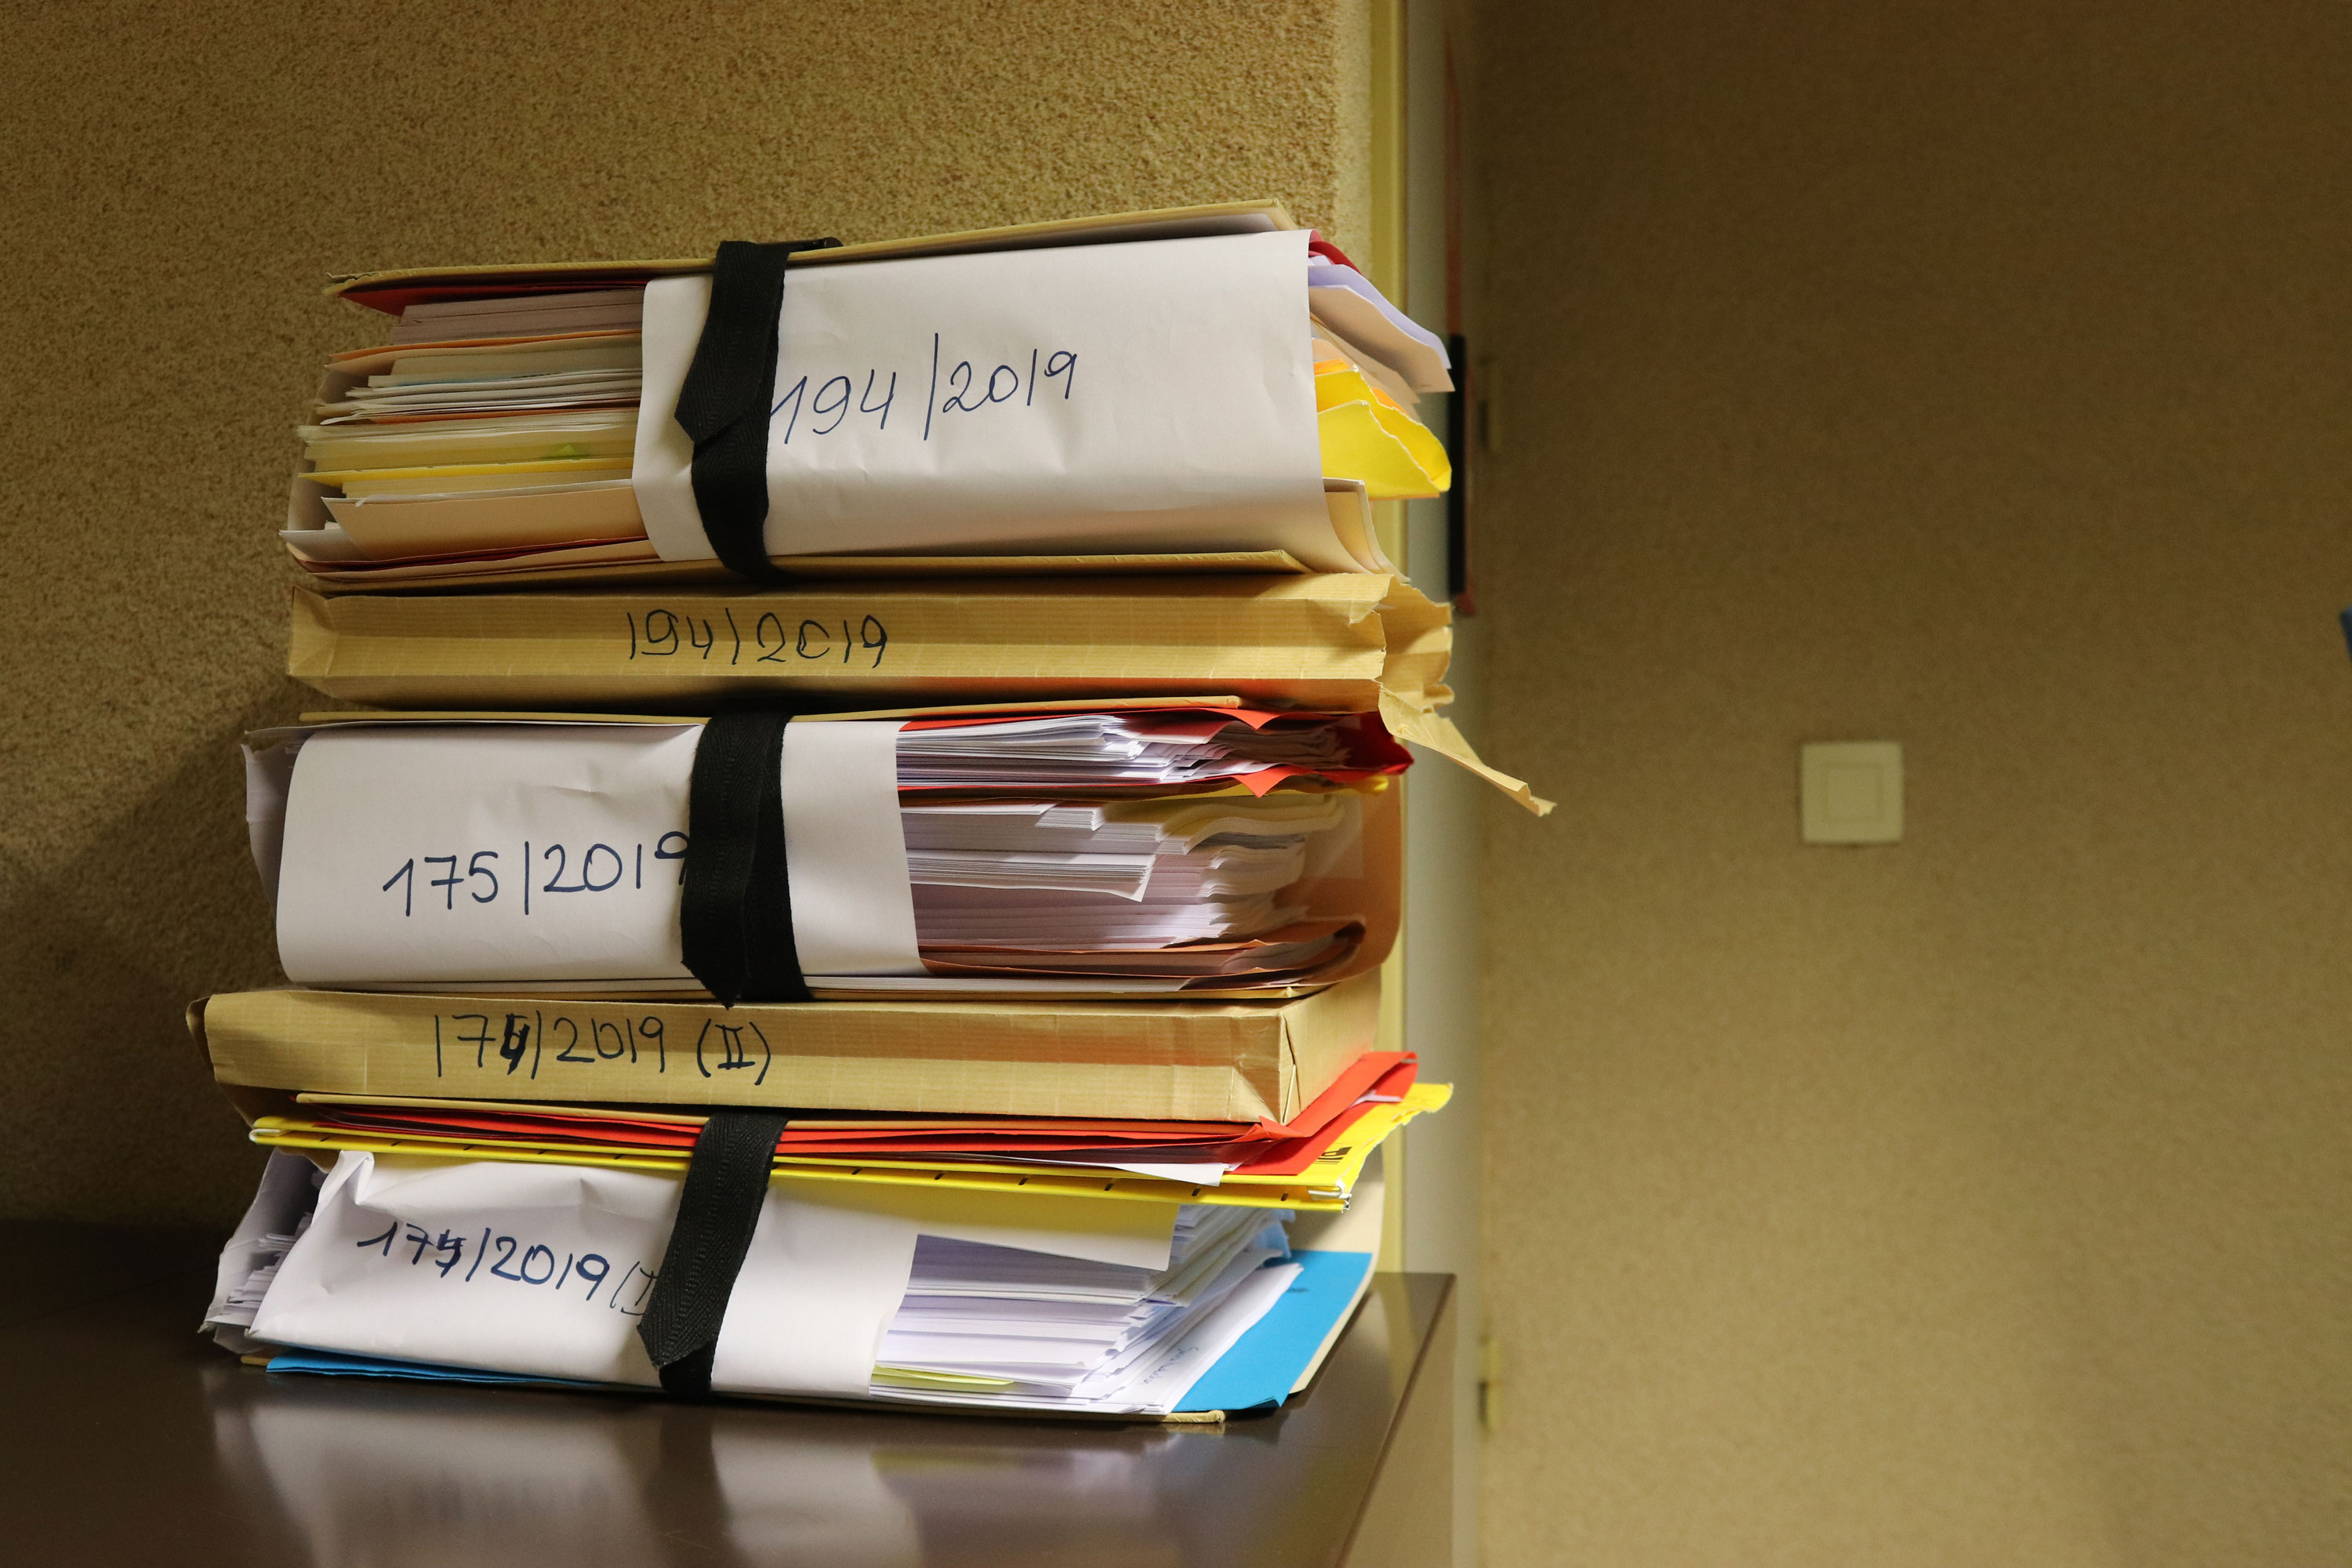 194/2019
194/2019
175/2019
174/2019 (II)
174/2019 (I